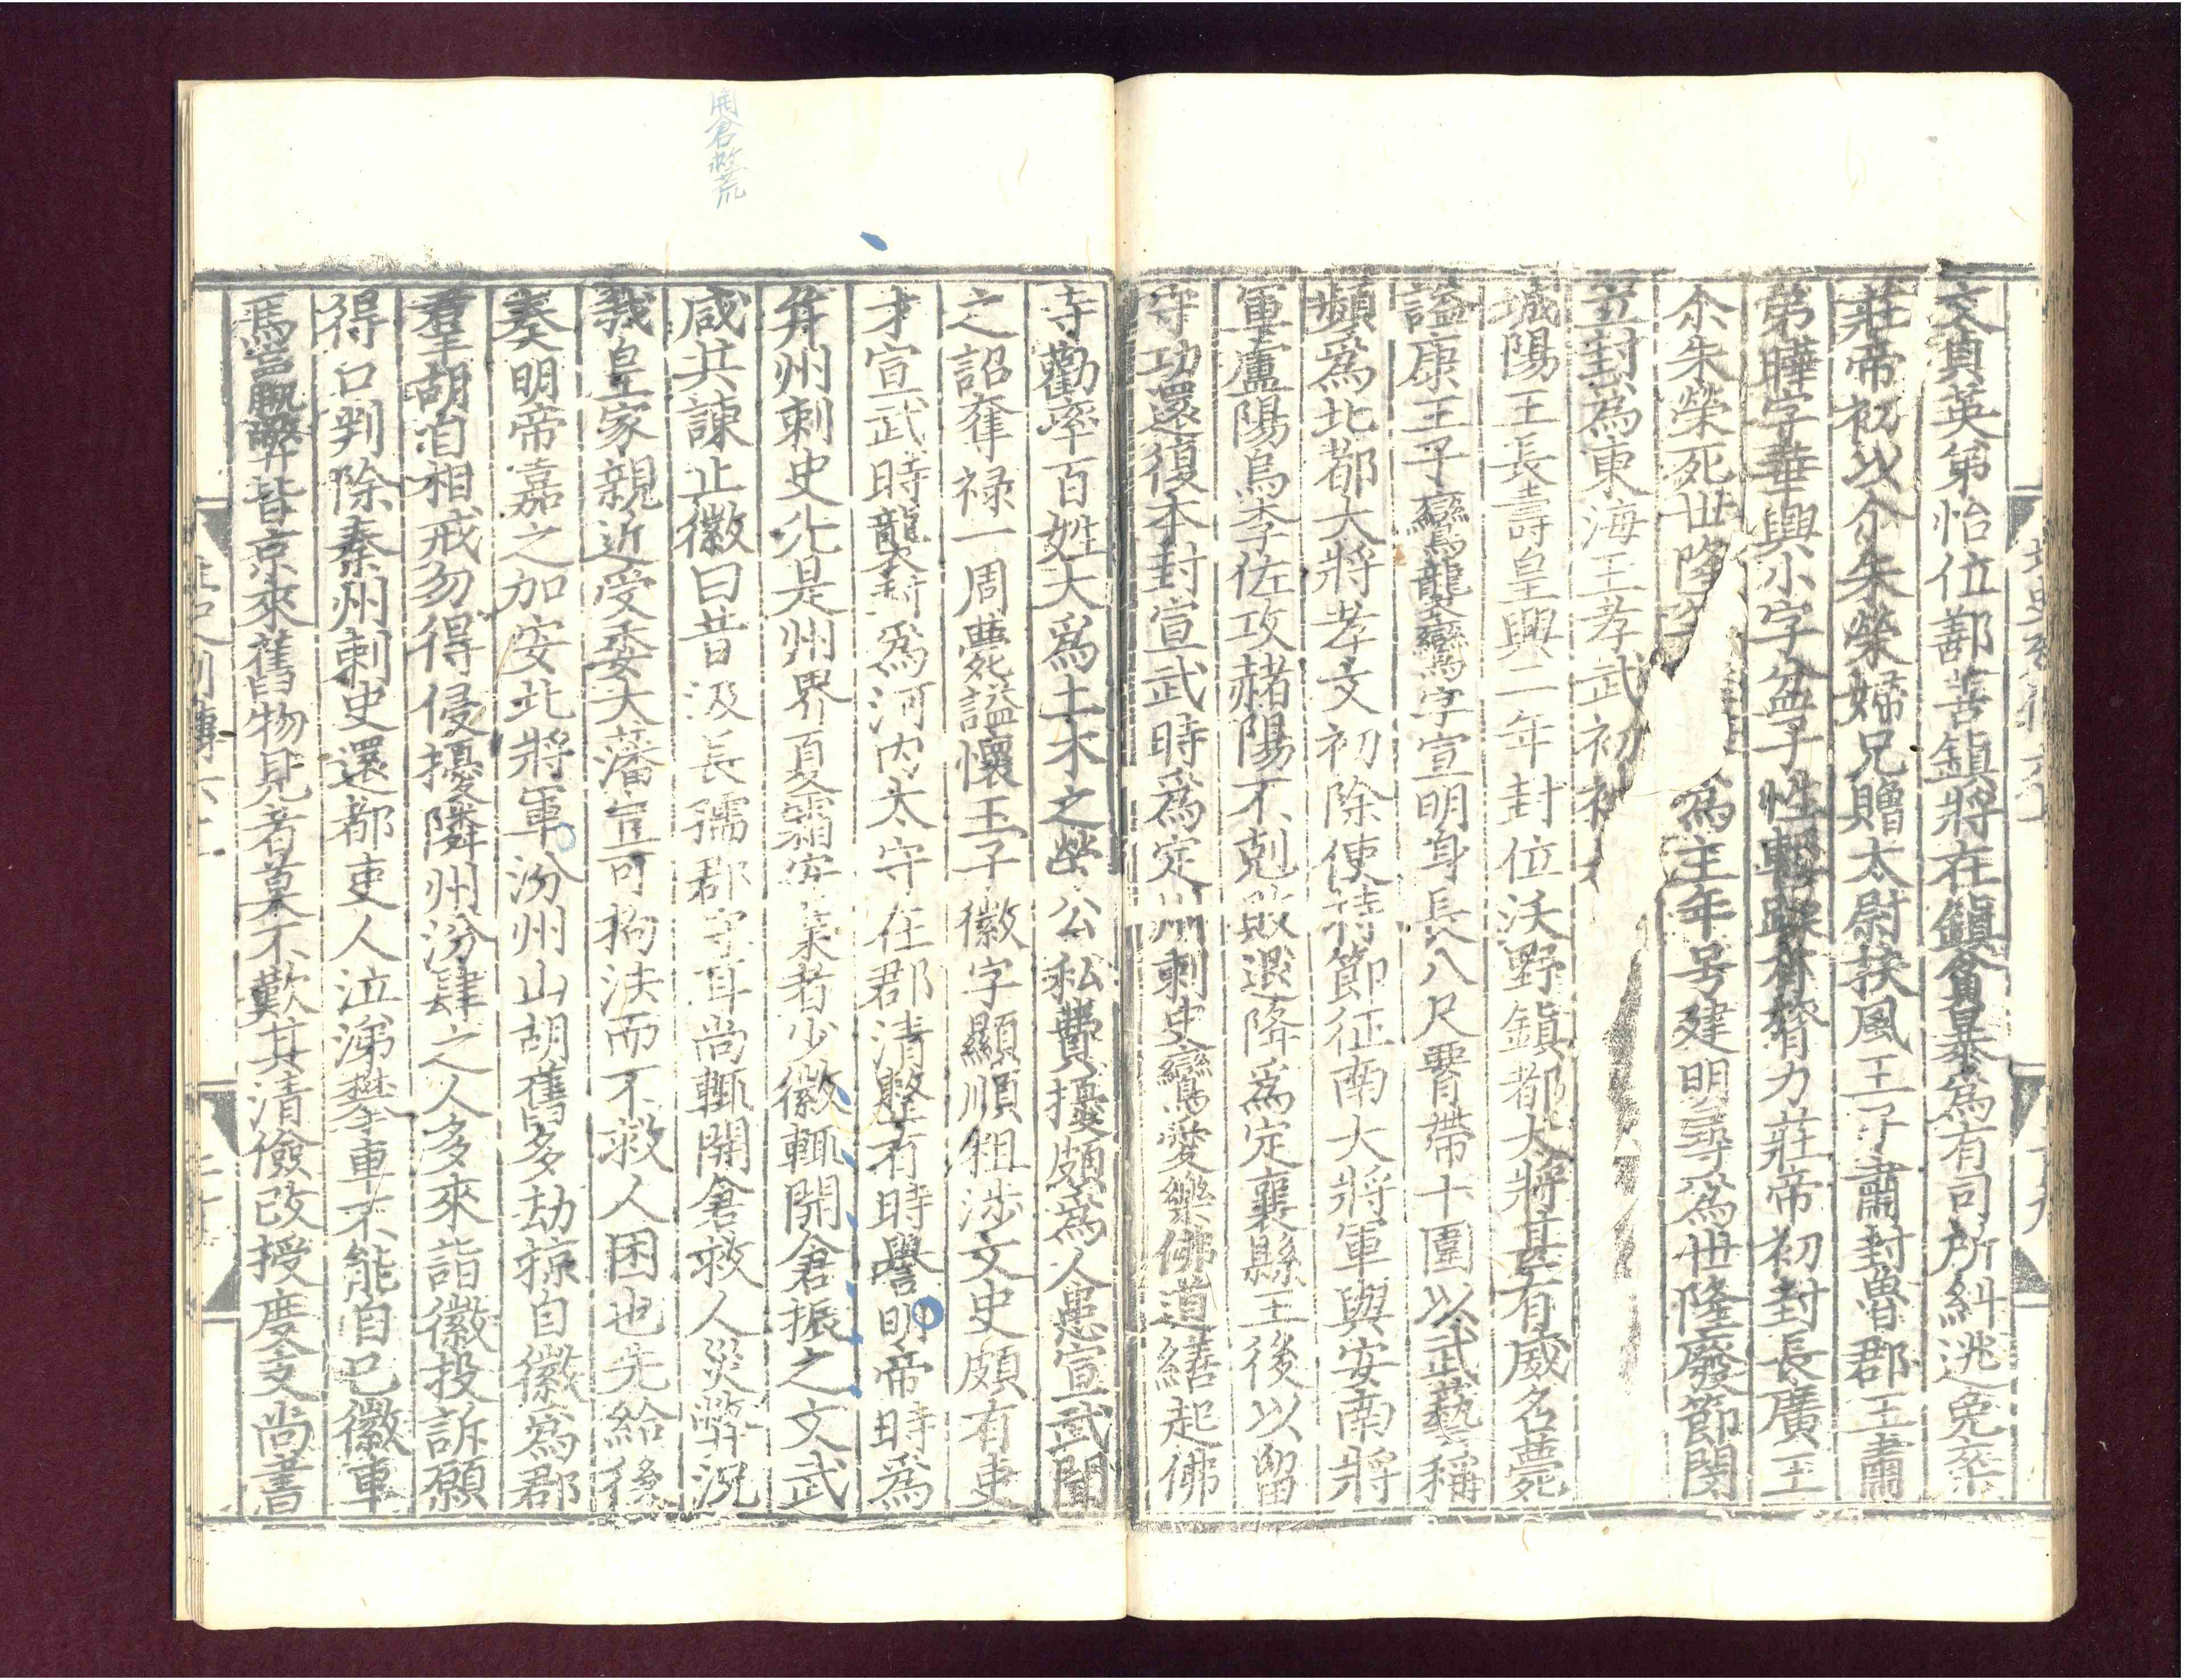 文貞英弟怡位鄯善鎮將在鎮貪暴爲有司所糾逃免卒
莊帝初以尒朱榮婦兄贈太尉扶風王子肅封魯郡王肅
弟曄字華興小字盆子性輕躁有膂力莊帝初封長廣王
尒朱榮死世隆 爲主年号建明尋爲世隆廢節閔
立封爲東海王孝武初
城陽王長壽皇興二年封位沃野鎮都大將甚有威名薨
諡康王子鸞龍 鸞字宣明身長八尺署帶十圍以武藝稱
頻爲北都大將孝文初除使持節征南大將軍與安南將
軍盧陽烏李佐攻赭陽不剋敗退降爲定襄縣王後以留
守功還復本封宣武時爲定州刺史鸞愛樂佛道繕起佛
寺勸率百姓大爲土木之勞公私費擾頗爲人患宣武聞
之詔奪祿一周薨諡懷王子徽字顯順粗涉文史頗有吏
才宣武時襲封爲河內太守在郡清整有時譽明帝時爲
幷州刺史先是州界夏霜安業者少徽輒開倉振之文武
咸共諫止徽曰昔汲長孺郡守耳尚輒開倉救人災弊況
我皇家親近受委大藩豈可拘法而不救人困也先給後
奏明帝嘉之加安北將軍汾州山胡舊多劫掠自徽爲郡
羣胡自相戒勿得侵擾隣州汾肆之人多來詣徽投訴願
得口判除秦州刺史還都吏人泣涕攀車不能自已徽車
馬羸弊皆京來舊物見者莫不歎其清儉改授度支尚書
開倉救荒